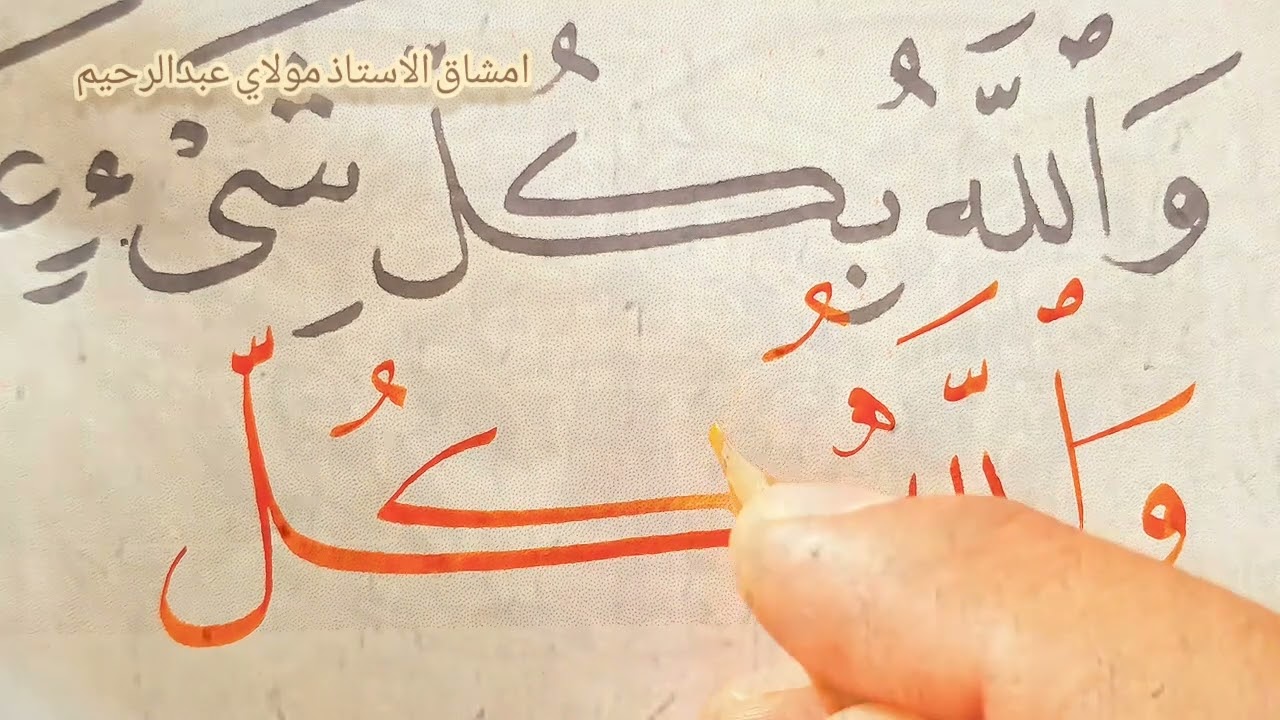 امشاق الأستاذ مولاي عبدالرحيم
وَٱللَّهُ بِكُلِّ شَىْءٍ
وَٱللَّهُ بِكُلِّ